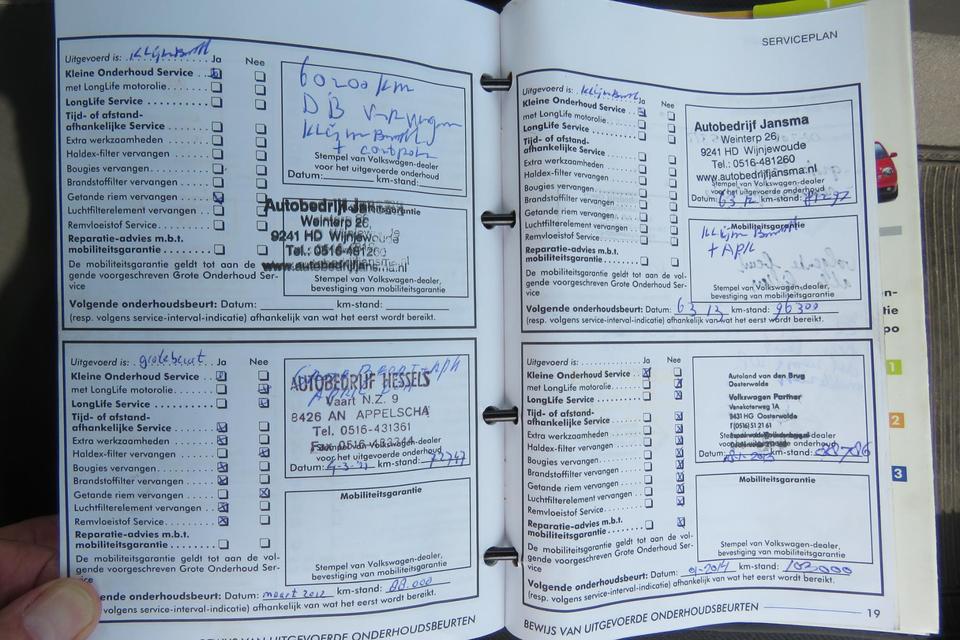 Uitgevoerd is: Klijn Brtl Ja Nee
Kleine Onderhoud Service
met LongLife motorolie
LongLife Service
Tijd- of afstand-
afhankelijke Service
Extra werkzaamheden
Haldex-filter vervangen
Bougies vervangen
Brandstoffilter vervangen
Getande riem vervangen
Luchtfilterelement vervangen
Remvloeistof Service
Reparatie-advies m.b.t.
mobiliteitsgarantie
De mobiliteitsgarantie geldt tot aan de vol-
gende voorgeschreven Grote Onderhoud Ser-
vice
60200 km
DB
Stempel van Volkswagen-dealer
voor het uitgevoerde onderhoud
Datum: km-stand:
Autobedrijf Jansma
Weinterp 26,
9241 HD Wijnjewoude
Tel.: 0516-481260
www.autobedrijfjansma.nl
Stempel van Volkswagen-dealer,
bevestiging van mobiliteitsgarantie
Volgende onderhoudsbeurt: Datum: km-stand:
(resp. volgens service-interval-indicatie) afhankelijk van wat het eerst wordt bereikt.
Uitgevoerd is: grote beurt Ja Nee
Kleine Onderhoud Service
met LongLife motorolie
LongLife Service
Tijd- of afstand-
afhankelijke Service
Extra werkzaamheden
Haldex-filter vervangen
Bougies vervangen
Brandstoffilter vervangen
Getande riem vervangen
Luchtfilterelement vervangen
Remvloeistof Service
Reparatie-advies m.b.t.
mobiliteitsgarantie
De mobiliteitsgarantie geldt tot aan de vol-
gende voorgeschreven Grote Onderhoud Ser-
vice
AUTOBEDRIJF HESSELS
Vaart N.Z. 9
8426 AN APPELSCHA
Tel. 0516-431361
Fax 0516-433244
Stempel van Volkswagen-dealer
voor het uitgevoerde onderhoud
Datum: km-stand: 72747
Mobiliteitsgarantie
Stempel van Volkswagen-dealer,
bevestiging van mobiliteitsgarantie
ende onderhoudsbeurt: Datum: maart 2012 km-stand: 88.000
volgens service-interval-indicatie) afhankelijk van wat het eerst wordt bereikt.
BEWIJS VAN UITGEVOERDE ONDERHOUDSBEURTEN
SERVICEPLAN
Uitgevoerd is: Klijn Brtl Ja Nee
Kleine Onderhoud Service
met LongLife motorolie
LongLife Service
Tijd- of afstand-
afhankelijke Service
Extra werkzaamheden
Haldex-filter vervangen
Bougies vervangen
Brandstoffilter vervangen
Getande riem vervangen
Luchtfilterelement vervangen
Remvloeistof Service
Reparatie-advies m.b.t.
mobiliteitsgarantie
De mobiliteitsgarantie geldt tot aan de vol-
gende voorgeschreven Grote Onderhoud Ser-
vice
Autobedrijf Jansma
Weinterp 26,
9241 HD Wijnjewoude
Tel.: 0516-481260
www.autobedrijfjansma.nl
Stempel van Volkswagen-dealer
voor het uitgevoerde onderhoud
Datum: 63 12 km-stand:
Mobiliteitsgarantie
+ APK
Stempel van Volkswagen-dealer,
bevestiging van mobiliteitsgarantie
Volgende onderhoudsbeurt: Datum: 63 13 km-stand: 96300
(resp. volgens service-interval-indicatie) afhankelijk van wat het eerst wordt bereikt.
Uitgevoerd is: Ja Nee
Kleine Onderhoud Service
met LongLife motorolie
LongLife Service
Tijd- of afstand-
afhankelijke Service
Extra werkzaamheden
Haldex-filter vervangen
Bougies vervangen
Brandstoffilter vervangen
Getande riem vervangen
Luchtfilterelement vervangen
Remvloeistof Service
Reparatie-advies m.b.t.
mobiliteitsgarantie
De mobiliteitsgarantie geldt tot aan de vol-
gende voorgeschreven Grote Onderhoud Ser-
vice
Autoland van den Brug
Oosterwolde
Volkswagen Partner
Venekoterweg 1A
8431 HG Oosterwolde
T(0516) 51 21 61
Stempel van Volkswagen-dealer
voor het uitgevoerde onderhoud
Datum: km-stand: 88786
Mobiliteitsgarantie
Stempel van Volkswagen-dealer,
bevestiging van mobiliteitsgarantie
Volgende onderhoudsbeurt: Datum: 01-2014 km-stand: 103000
(resp. volgens service-interval-indicatie) afhankelijk van wat het eerst wordt bereikt.
BEWIJS VAN UITGEVOERDE ONDERHOUDSBEURTEN 19
n-
tie
po
1
2
3